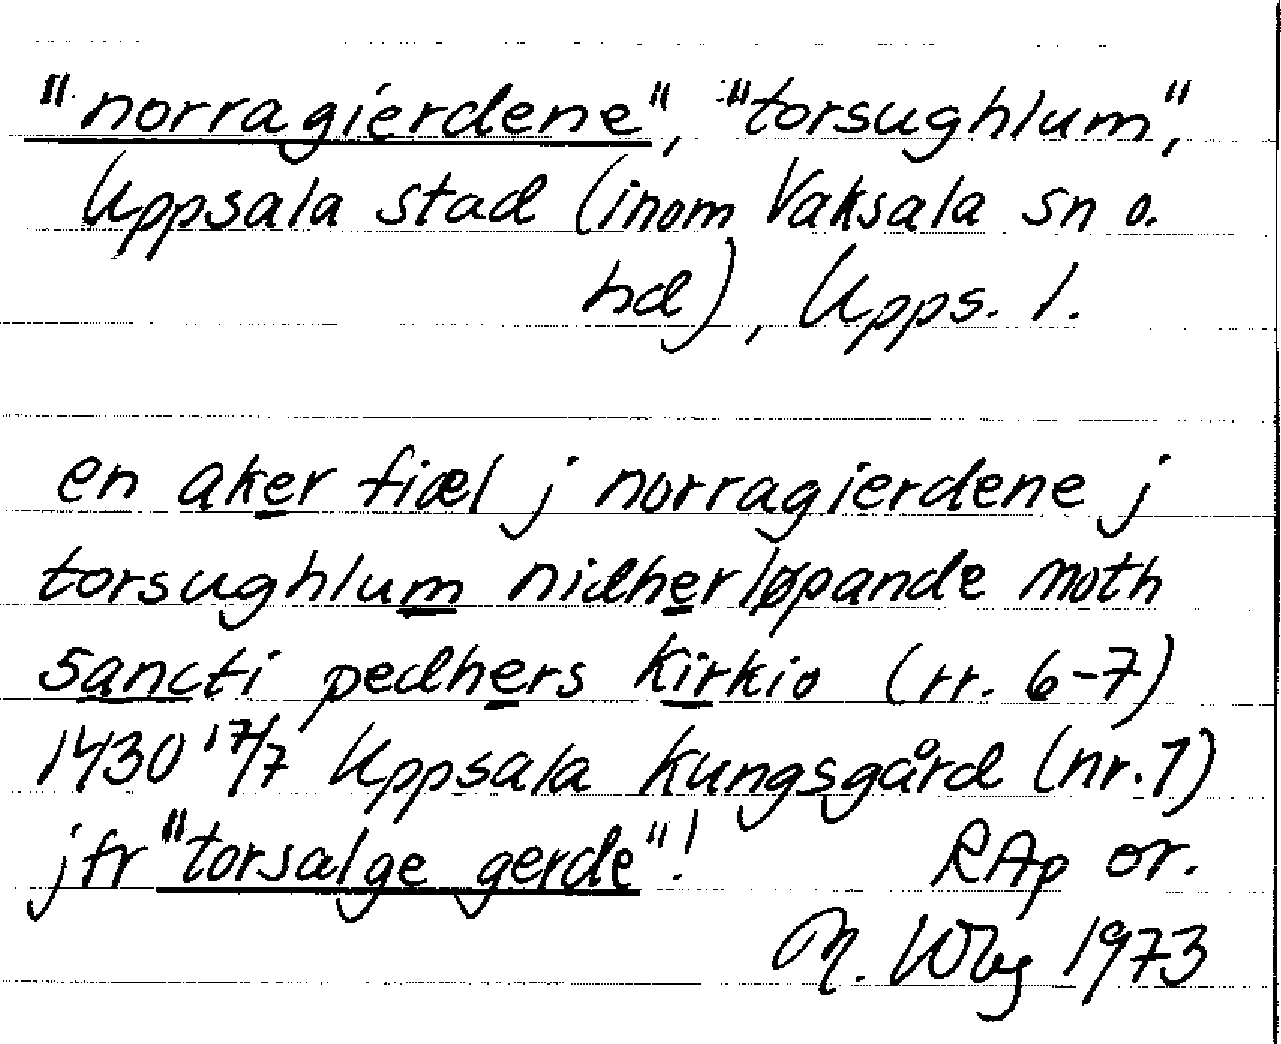 "norragierdene", "torsughlum",
Uppsala stad (inom Vaksala sn o.
hd), Upps. l.
en aker fiæl j norragierdene j
torsughlum nidherløpande moth
sancti pedhers kirkio (rr. 6-7)
1430 17/7 Uppsala Kungsgård (nr. 1)
jfr "torsalge gerde"! RAp or.
M. Wbg 1973